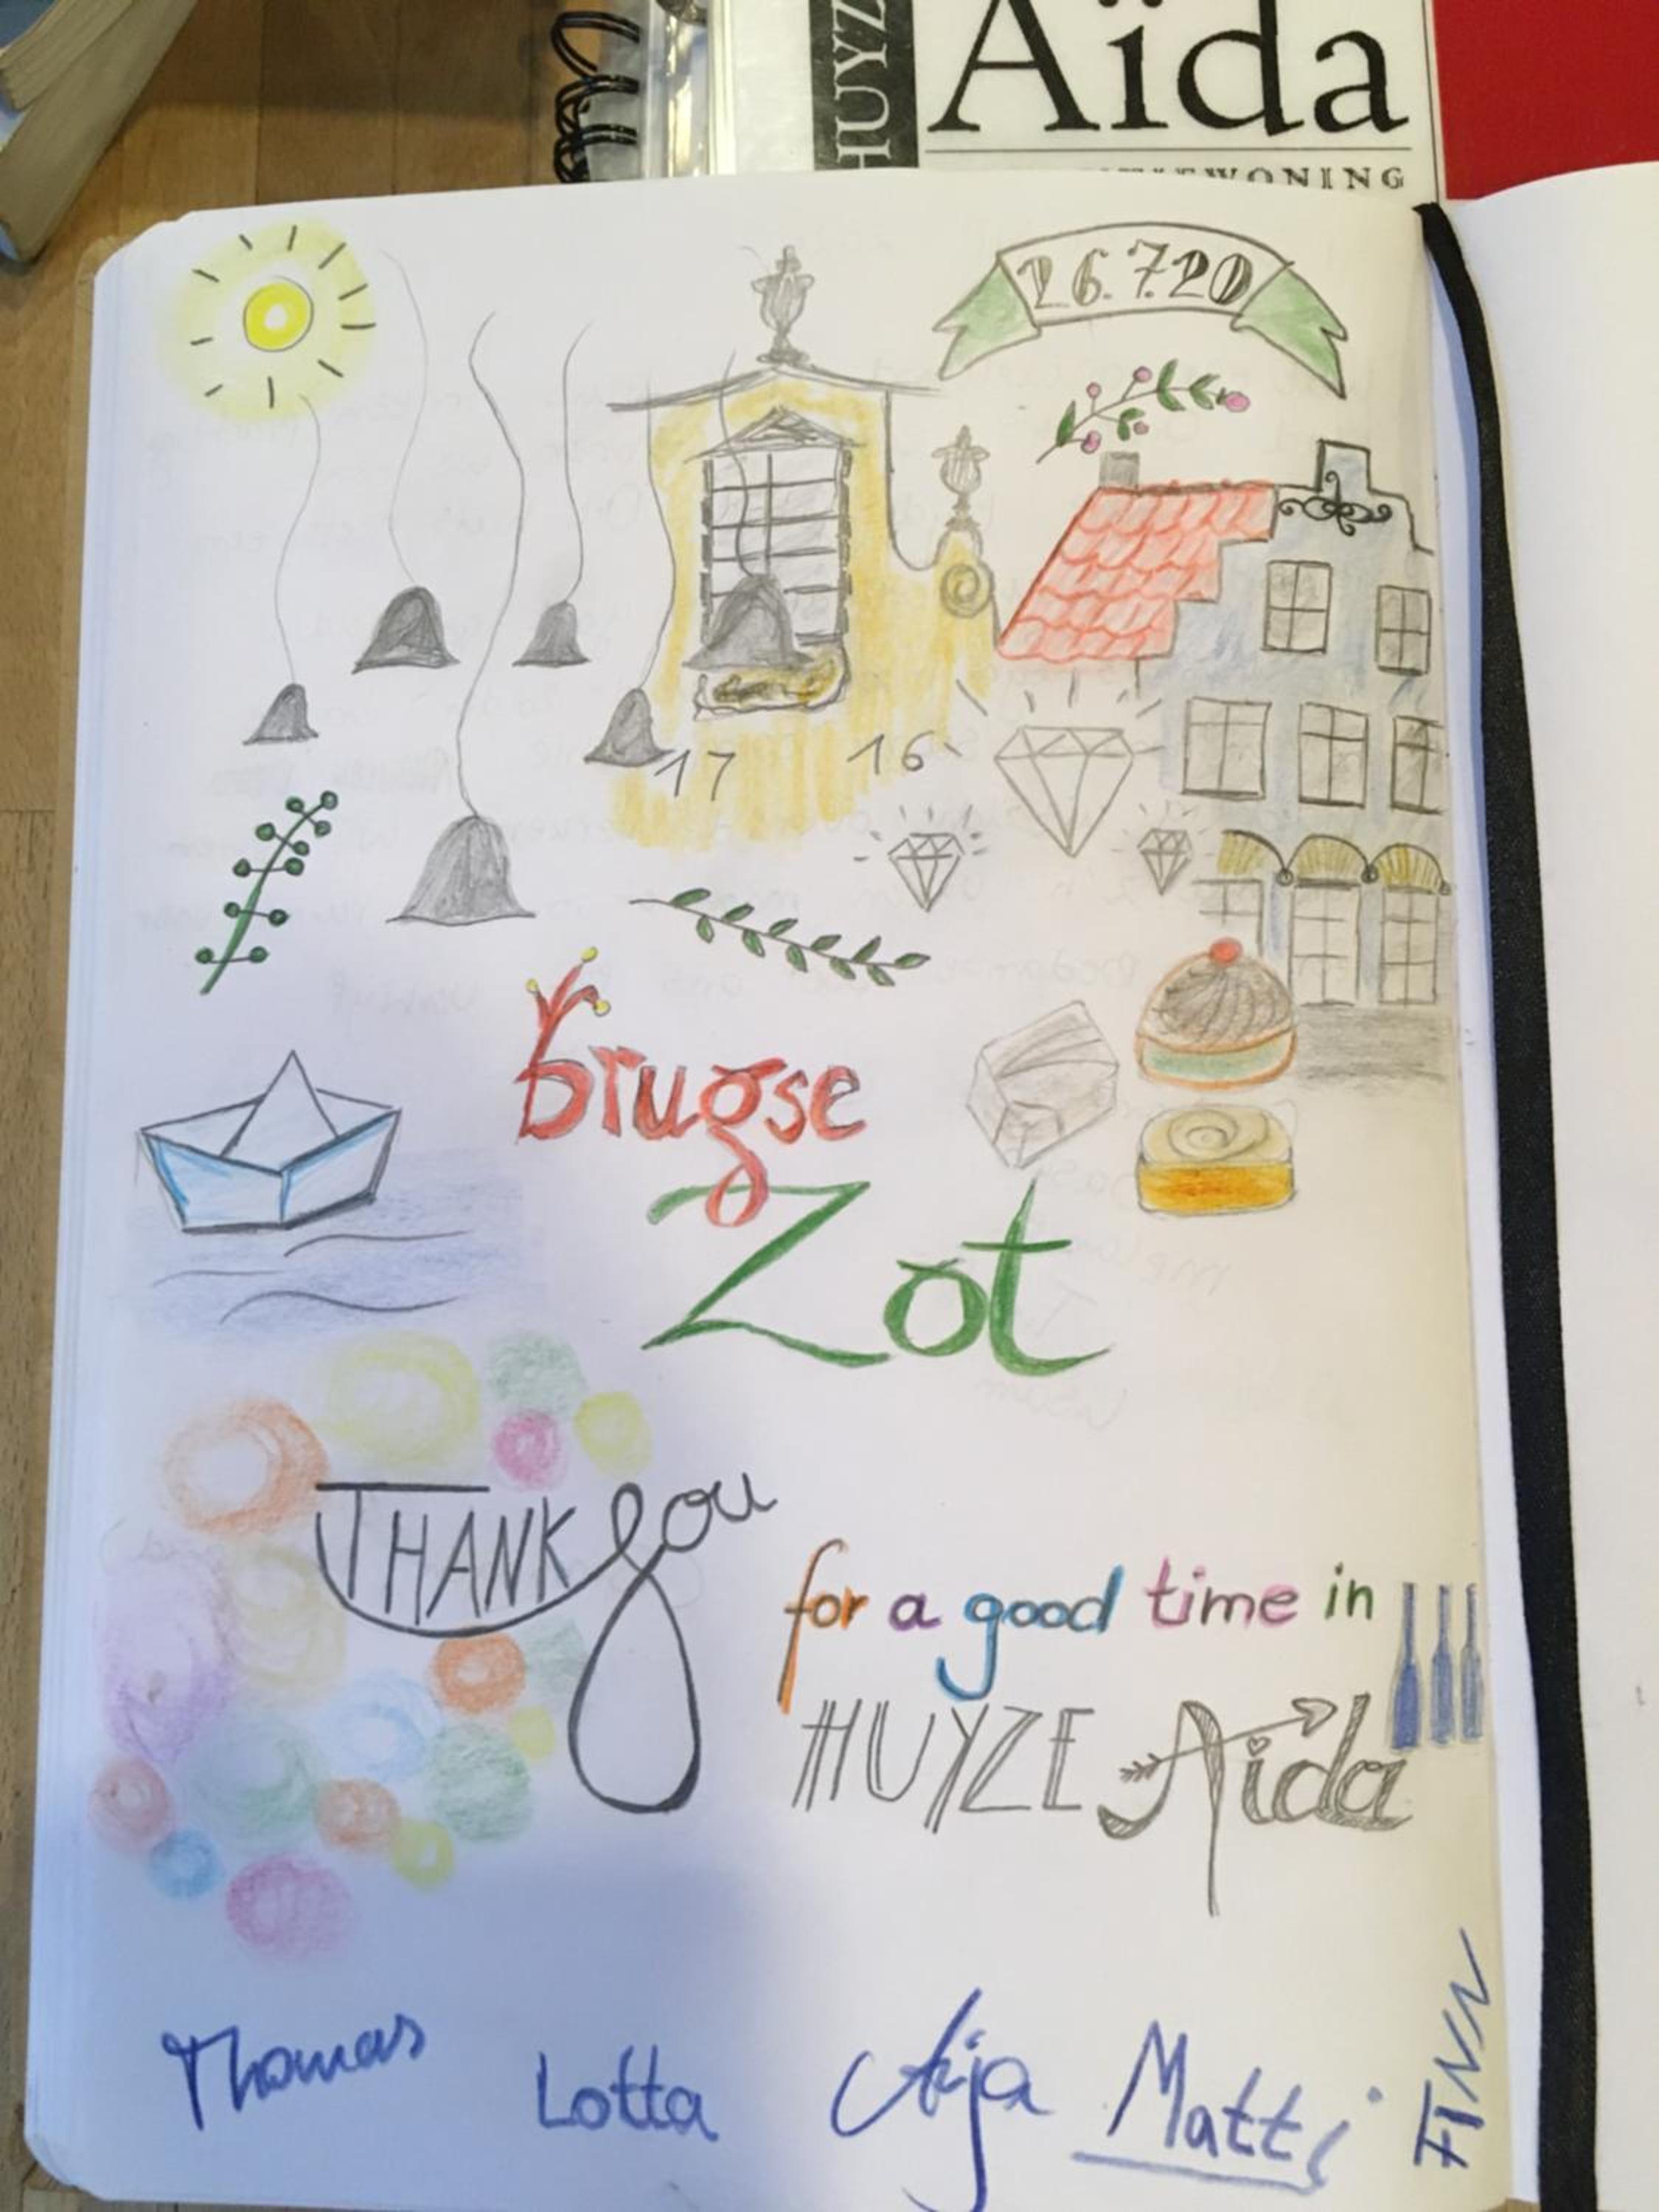 HUYZ
Aïda
WONING
26.7.20
17 16
brugse
Zot
THANK you
for a good time in
HUYZE Aida
Thomas Lotta Aija Matti FINN